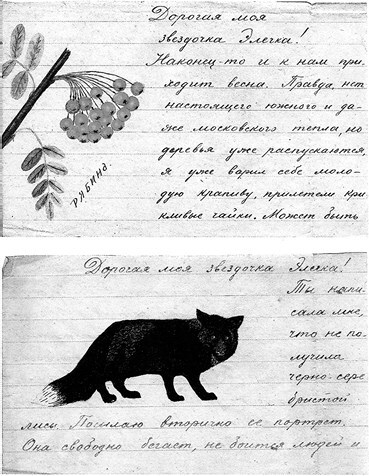 Дорогая моя
звездочка Элечка!
Наконец-то и к нам при-
ходит весна. Правда, нет
настоящего южного и да-
же московского тепла, но
деревья уже распускаются,
я уже варил себе моло-
дую крапиву, прилетели кри-
кливые чайки. Может быть
РЯБИНА.
Дорогая моя звездочка Элечка!
Ты напи-
сала мне,
что не по-
лучила
черно-сере
бристой
лисы. Посылаю вторично ее портрет.
Она свободно бегает, не боится людей и